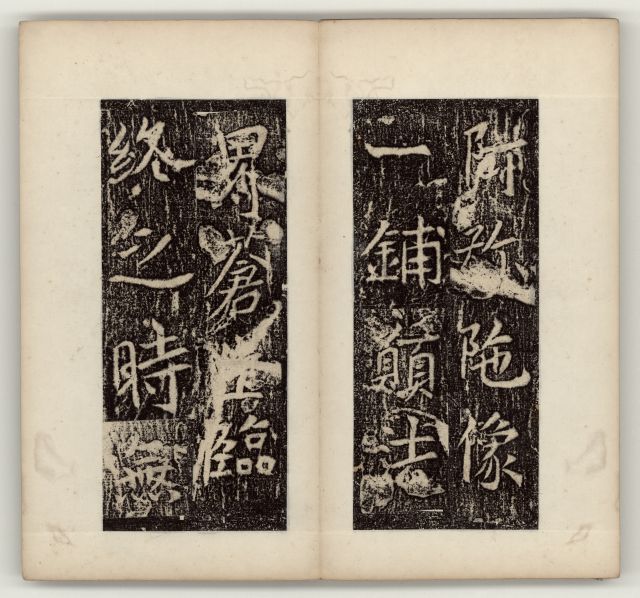 阿弥陁像
一鋪願法
界蒼生臨
終之時無